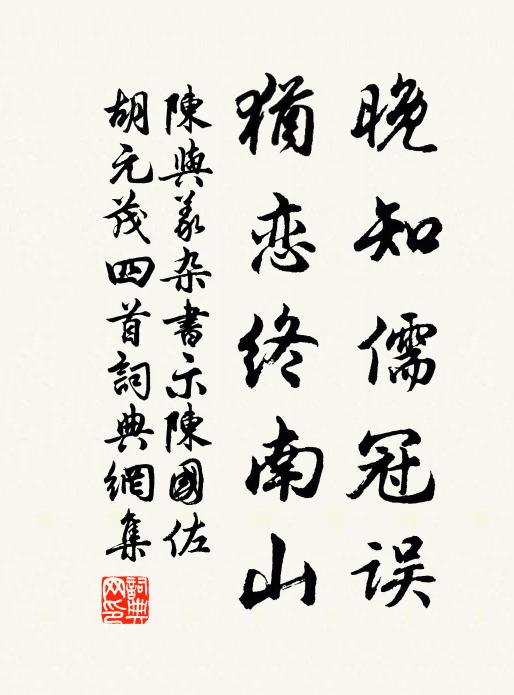 晚知儒冠误
猶恋终南山
陳與義杂書示陳國佐
胡元茂四首詞典網集
詞典网印